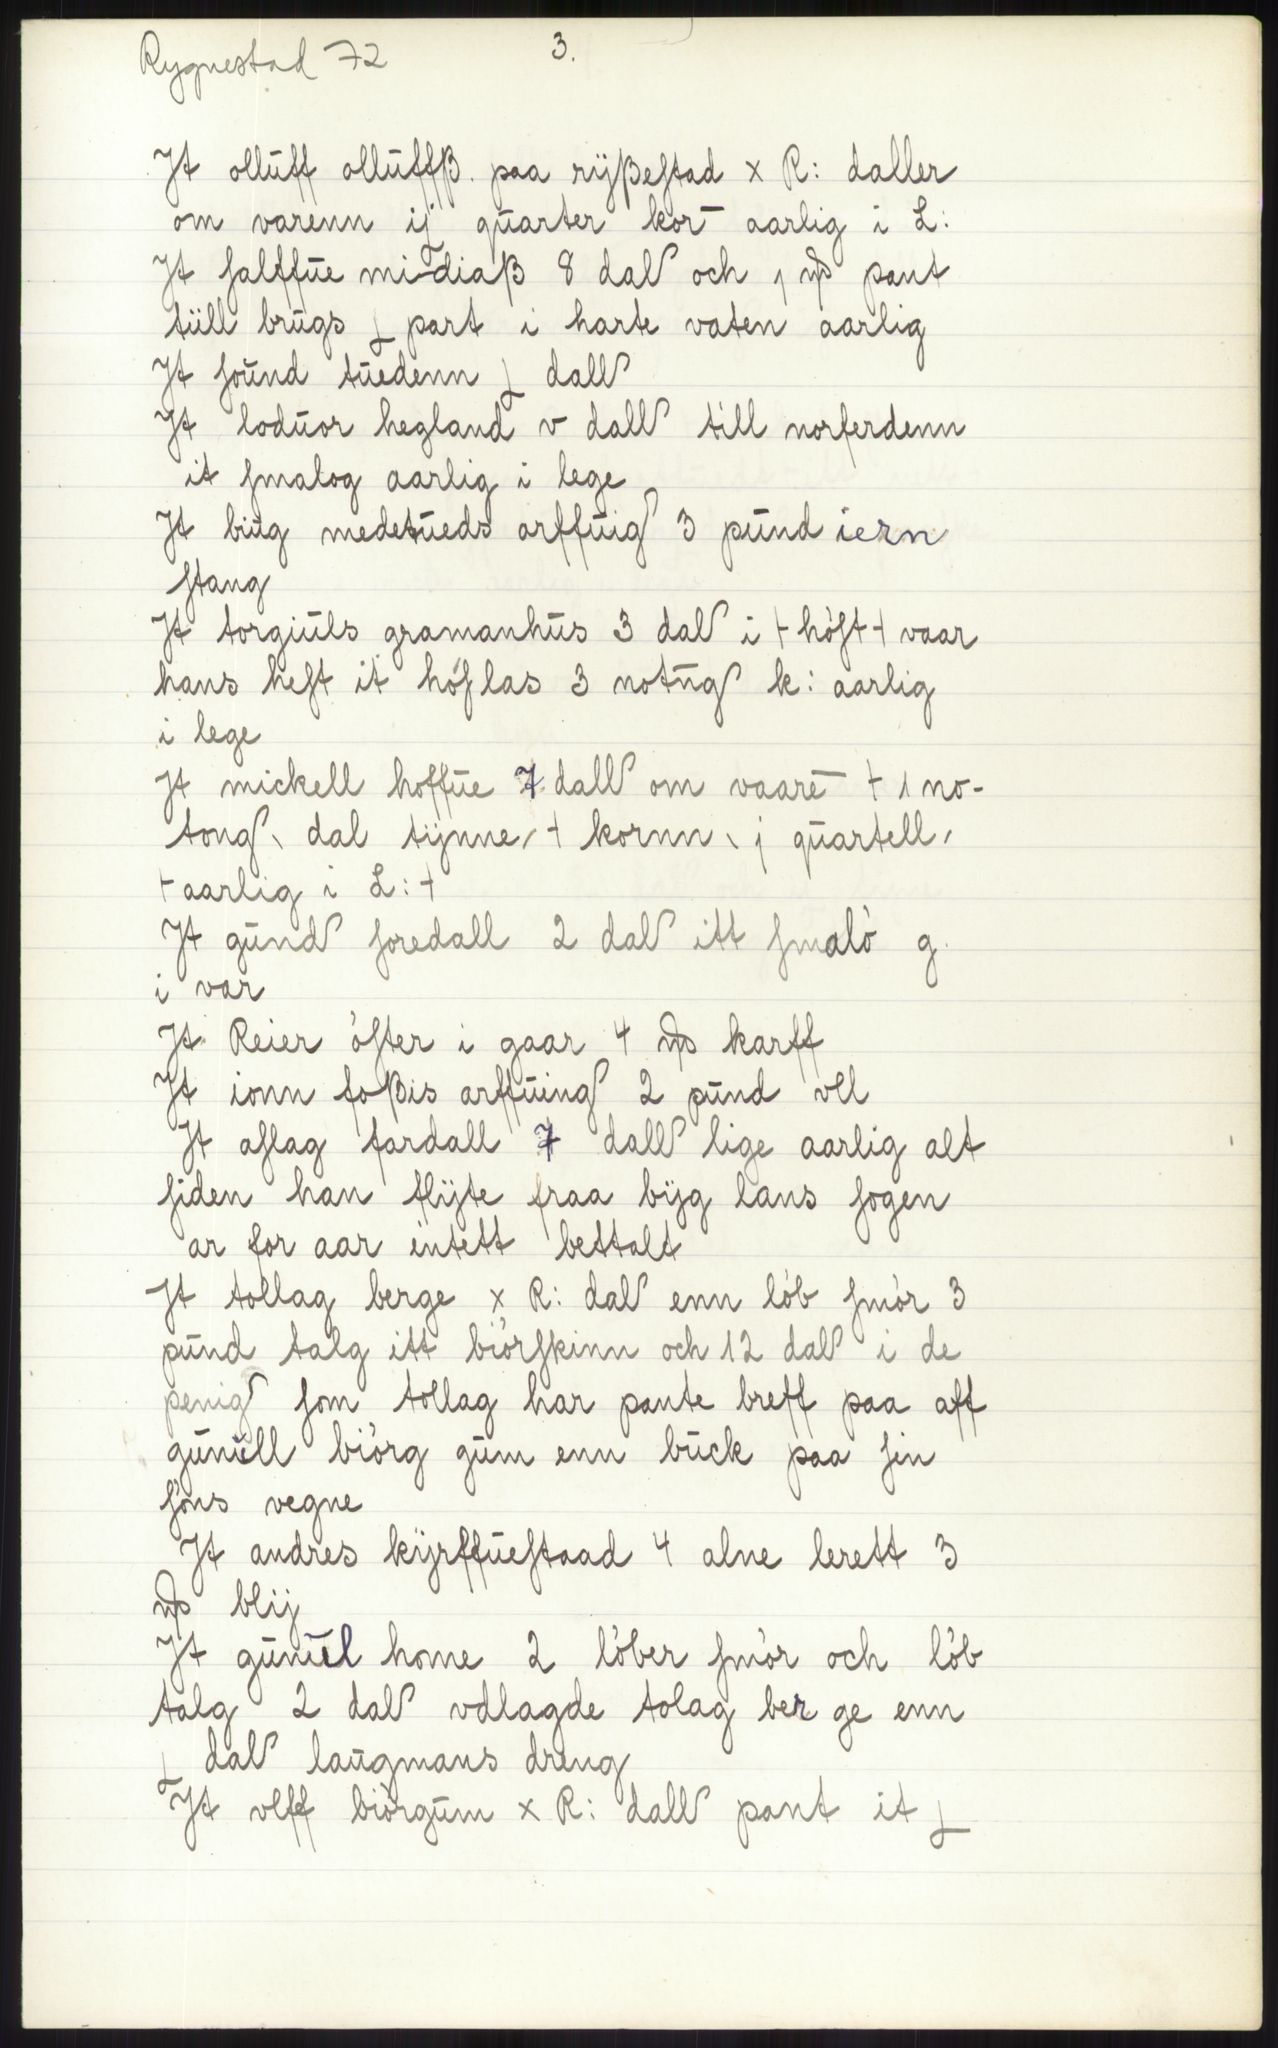 Rygnestad 72
3.
It olluff olluffß. paa rÿßestad x R: daller
om varenn ij quarter kor̄ aarlig i L:
It salffue midiaß 8 dal och 1 pant
tüll brugs part i harte vaten aarlig
It sound tuedenn dall
It loduor hegland v dall till norferdenn
it smalog aarlig i lege
It biug medetueds arffuig 3 pund iern
stang
It torgiuls gramanhus 3 dal i + höst + vaar
hans heft it höslas 3 notug k: aarlig
i lege
It mickell hoffue 7 dall om vaare + 1 no-
tong dal tijnne + kornn j quartell
+ aarlig i L: +
It gund foredall 2 dal itt smalö g
i var
It Reier öfter i gaar 4 karff
It ionn foßis arffuing 2 pund vll
It aslag fardall 7 dall lige aarlig alt
siden han flÿte fraa bÿg lans sogen
ar for aar intett bettalt
It tollag berge x R: dal enn löb smör 3
pund talg itt biörskinn och 12 dal i de
penig som tollag har pante breff paa aff
gunull biörg gum enn buck paa sin
söns vegne
It andres kÿrffuestaad 4 alne lerett 3
blij
It gunuel home 2 löber smör och löb
talg 2 dal vdlagde tolag ber ge enn
dal laugmans dreng
It vlff biörgum x R: dall pant it